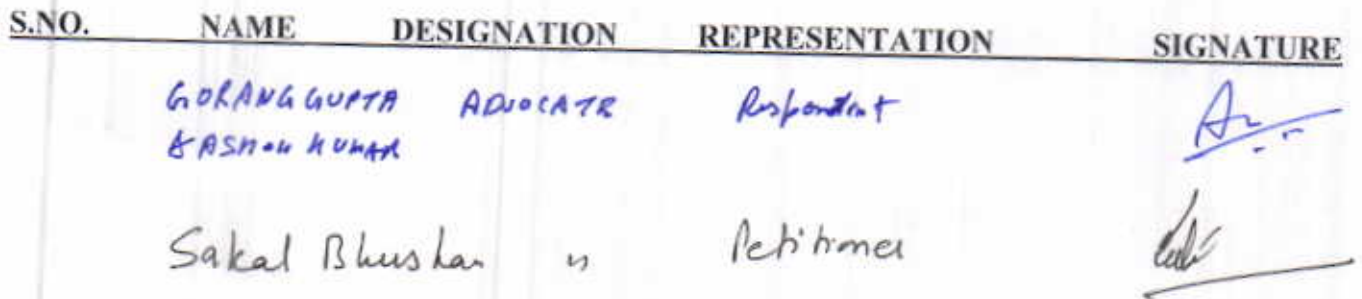 S.NO. NAME DESIGNATION REPRESENTATION SIGNATURE
GORANG GUPTA ADVOCATE Respondent
& ASHOK KUMAR
Sakal Bhushan " Petitioner